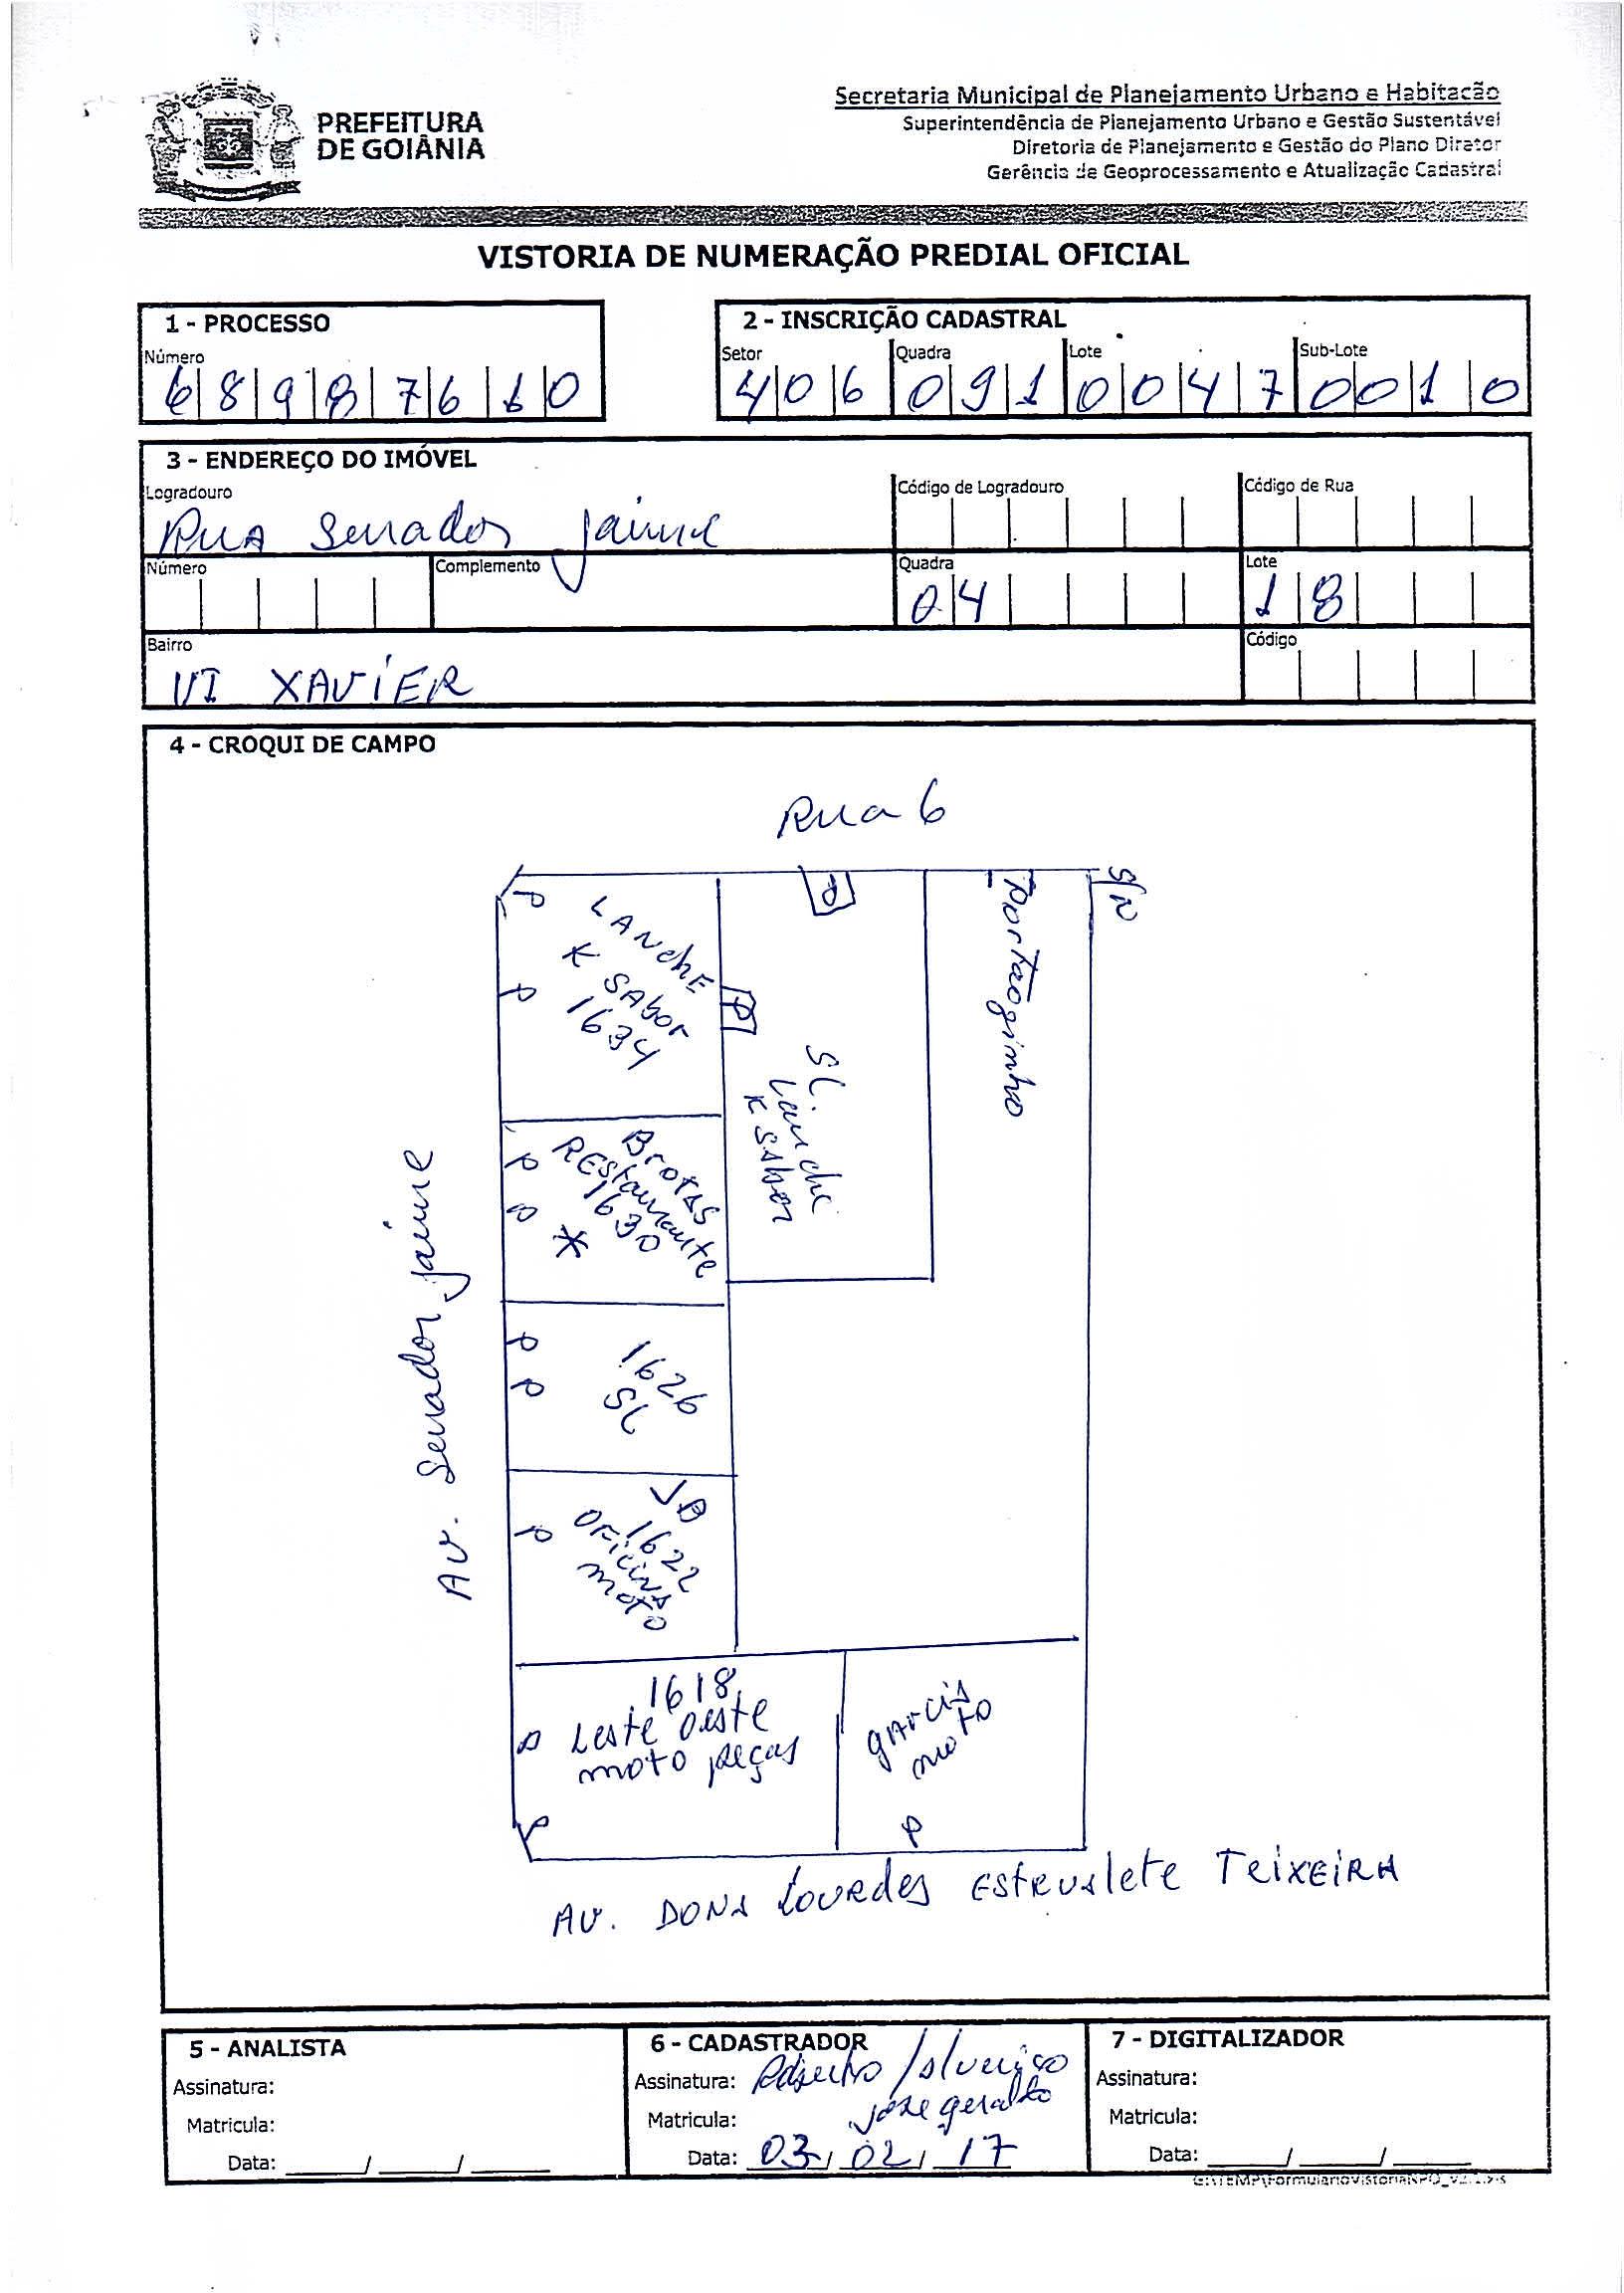 PREFEITURA
DE GOIÂNIA
Secretaria Municipal de Planejamento Urbano e Habitação
Superintendência de Planejamento Urbano e Gestão Sustentável
Diretoria de Planejamento e Gestão do Plano Diretor
Gerência de Geoprocessamento e Atualização Cadastral
VISTORIA DE NUMERAÇÃO PREDIAL OFICIAL
1 - PROCESSO
Número
6 8 9 8 7 6 1 0
2 - INSCRIÇÃO CADASTRAL
Setor Quadra Lote Sub-Lote
4 0 6 0 9 1 0 0 4 7 0 0 1 0
3 - ENDEREÇO DO IMÓVEL
Logradouro Código de Logradouro Código de Rua
Rua Senador Jaime
Número Complemento Quadra Lote
04 18
Bairro Código
VI XAVIER
4 - CROQUI DE CAMPO
Rua 6
S/N
P
LANCHE
K SABOR
1634
P
P
P
SL.
Lanche
K Sabor
Portãoginho
Brotas
REstaurante
1630
*
P
P
P
P
1626
SL
JB
1622
OFicina
moto
P
1618
Leste oeste
moto peças
P
P
garcia
moto
P
AV. Senador jaime
AV. DONA Lourdes EstRvalete TeixEiRA
5 - ANALISTA
Assinatura:
Matricula:
Data: ____/____/____
6 - CADASTRADOR
Assinatura:
josé geraldo
Matricula:
Data: 03/02/17
7 - DIGITALIZADOR
Assinatura:
Matricula:
Data: ____/____/____